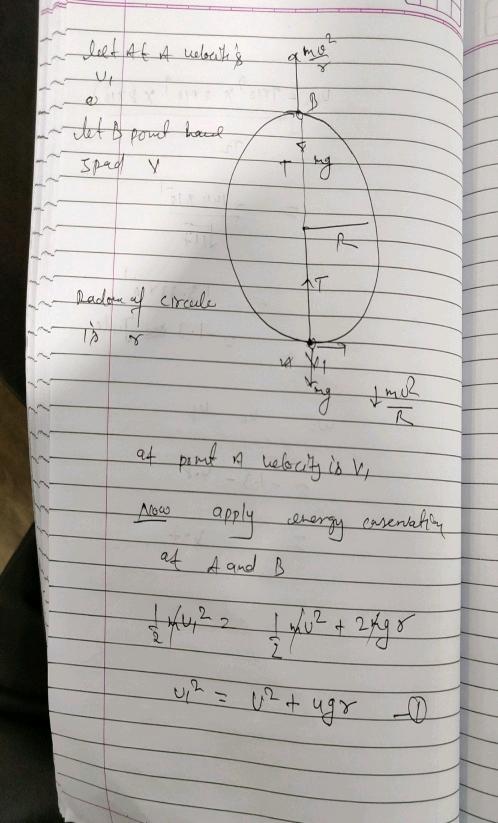 let At A velocity is
v₁
let B point have
speed v
mv²/r
B
T mg
R
T
Radom of circule
is r
A v₁
mg
↓ mv²/R
at point A velocity is V₁
Now apply energy conservation
at A and B
1/2 mv₁² = 1/2 mv² + 2mgr
v₁² = v² + 4gr —①